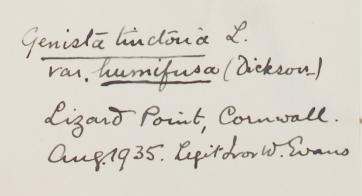 Genista tinctoria L.
var. humifusa (Dickson)
Lizard Point, Cornwall.
Aug. 1935. Legit Ivor W. Evans